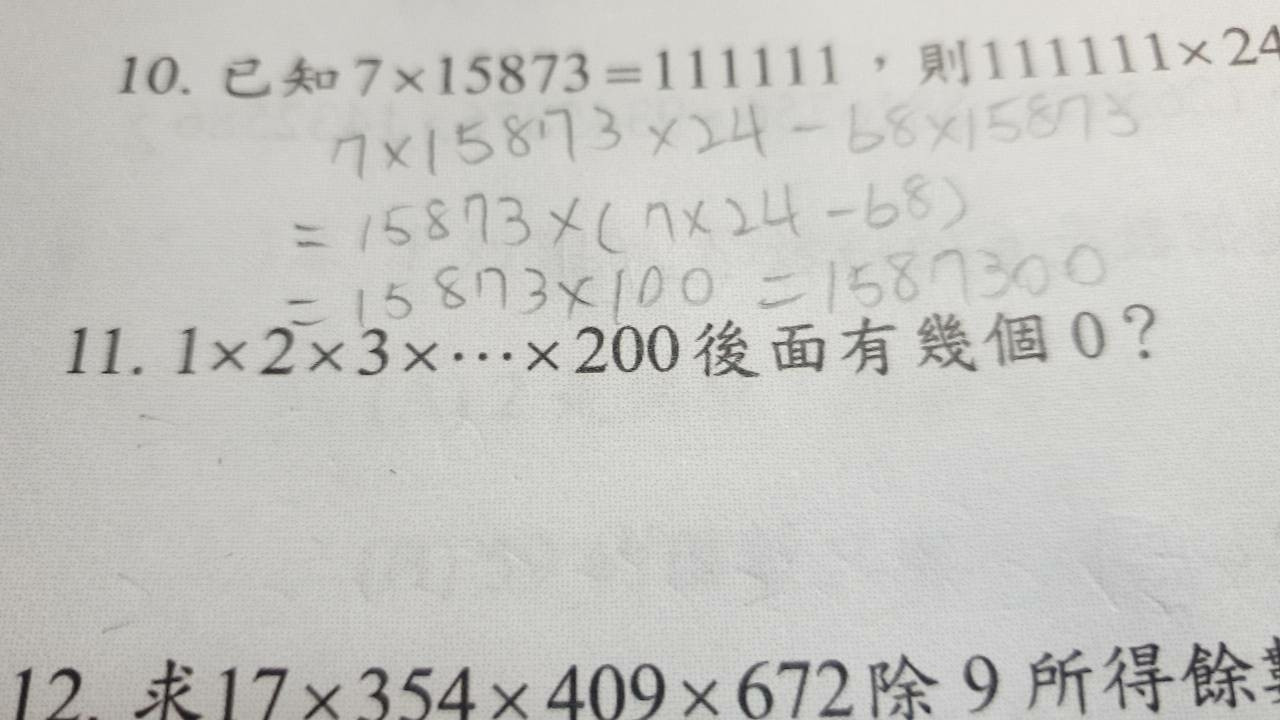 10. 已知7×15873=111111，則111111×24
7×15873×24-68×15873
=15873×(7×24-68)
=15873×100=1587300
11. 1×2×3×⋯×200後面有幾個0？
12. 求17×354×409×672除9所得餘